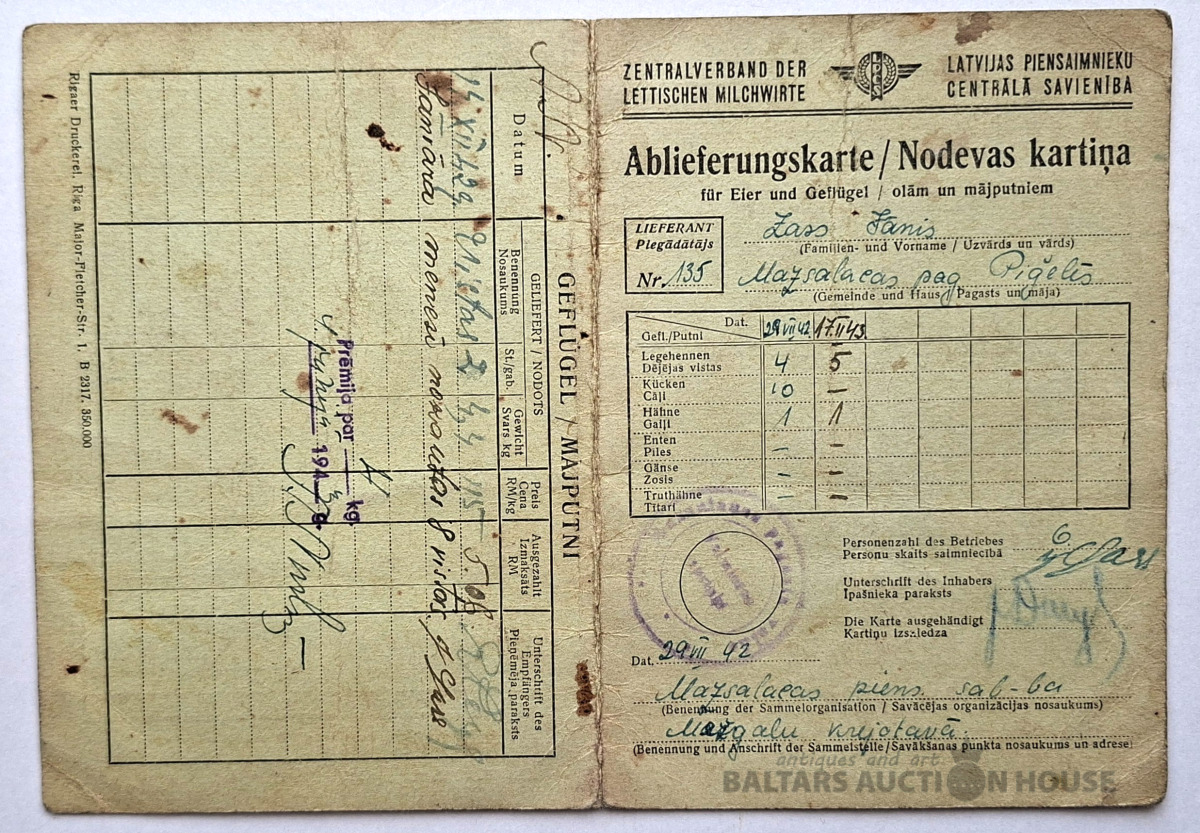 ZENTRALVERBAND DER
LETTISCHEN MILCHWIRTE
LATVIJAS PIENSAIMNIEKU
CENTRĀLĀ SAVIENĪBA
Ablieferungskarte / Nodevas kartiņa
für Eier und Geflügel / olām un mājputniem
LIEFERANT
Piegādātājs
Nr. 135
Zass Jānis
(Familien- und Vorname / Uzvārds un vārds)
Mazsalacas pag. Piģelēs
(Gemeinde und Haus / Pagasts un māja)
Gefl./Putni Dat. 29 VII 42. 17.II 43.
Legehennen
Dējējas vistas 4 5
Kücken
Cāļi 10 –
Hähne
Gaiļi 1 1
Enten
Pīles – –
Gänse
Zosis – –
Truthähne
Tītari – –
Personenzahl des Betriebes
Personu skaits saimniecībā 6
Unterschrift des Inhabers
Īpašnieka paraksts
Die Karte ausgehändigt
Kartiņu izsniedza
Dat. 29 VII 42
Mazsalacas piens. sab-ba
(Benennung der Sammelorganisation / Savācējas organizācijas nosaukums)
Mazgaļu krejotavā
(Benennung und Anschrift der Sammelstelle/Savākšanas punkta nosaukums un adrese)
antiques and art
BALTARS AUCTION HOUSE
GEFLÜGEL / MĀJPUTNI
Datum
GELIEFERT / NODOTS
Benennung
Nosaukums
St./gab.
Gewicht
Svars kg
Preis
Cena
RM/kg
Ausgezahlt
Izmaksāts
RM
Unterschrift des
Empfängers
Pieņēmēja paraksts
14 XII 42g. vistas 2 4,4 115 5.06
Janvāra mēnesī nokautas 8 vistas.
Prēmija par 4 kg.
194 3 g.
Rigaer Druckerei, Riga Major-Fletcher-Str. 1. B 2317. 350.000